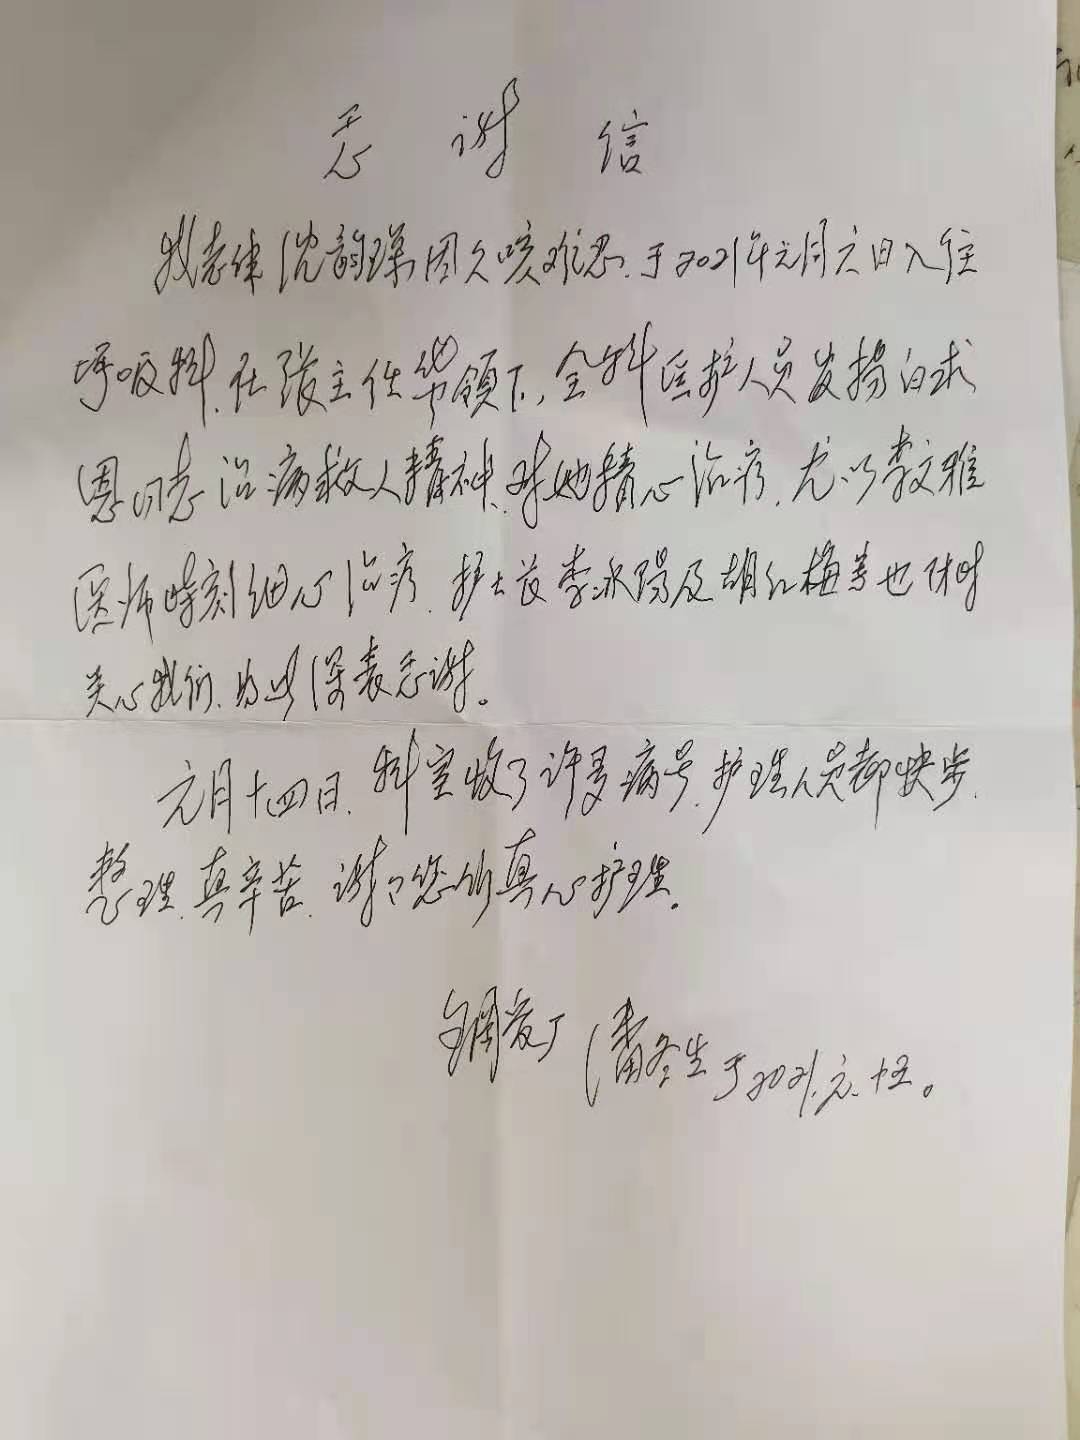 感谢信
我老伴沈韵琛因久咳难忍,于2021年元月六日入住
呼吸科,在张主任带领下,全科医护人员发扬白求
恩同志治病救人精神,对她精心治疗,尤以李文雅
医师时刻细心治疗,护士长李冰阳及胡红梅等也随时
关心我们,为此深表感谢。
元月十四日,科室收了许多病号,护理人员都快步
整理,真辛苦,谢谢您们真心护理。
钢管厂 潘冬生于2021.元.十五。